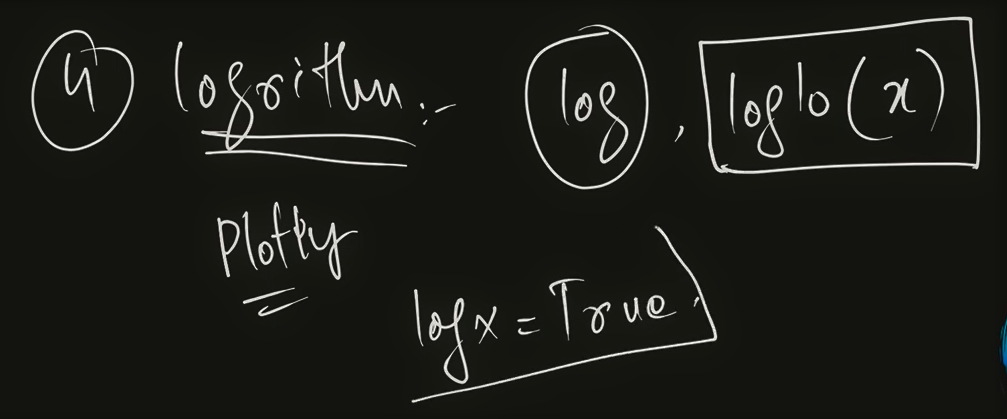 4 logrithm :- log , loglo(x)
Plotly
logx = True.